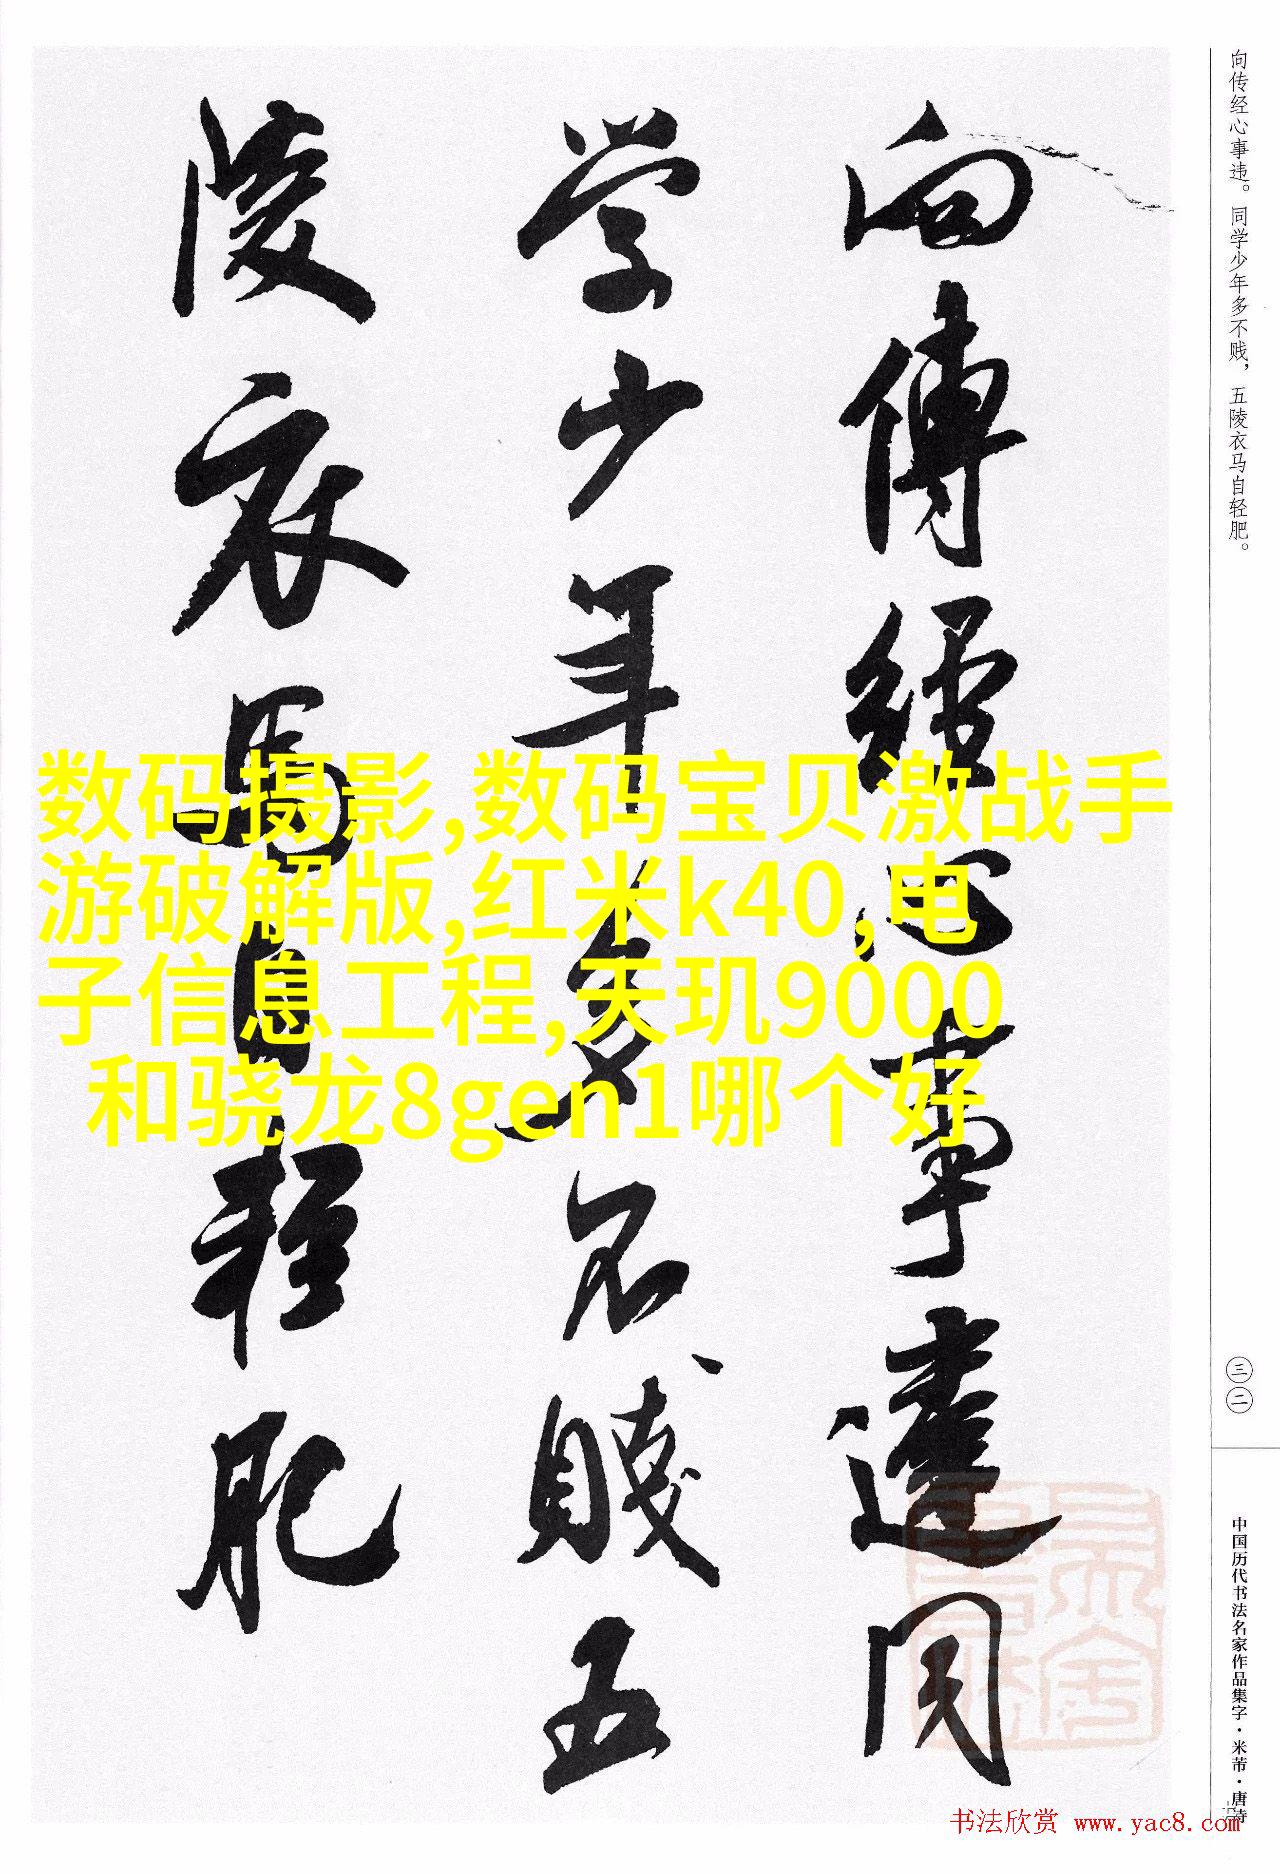 向传经心事违。同学少年多不贱，五陵衣马自轻肥。
向傳經心事違同
学少年多不賤五
陵衣馬自輕肥
数码摄影,数码宝贝激战手
游破解版,红米k40,电
子信息工程,天玑9000
和骁龙8gen1哪个好
三二
中国历代书法名家作品集字·米芾·唐诗
书法欣赏 www.yac8.com